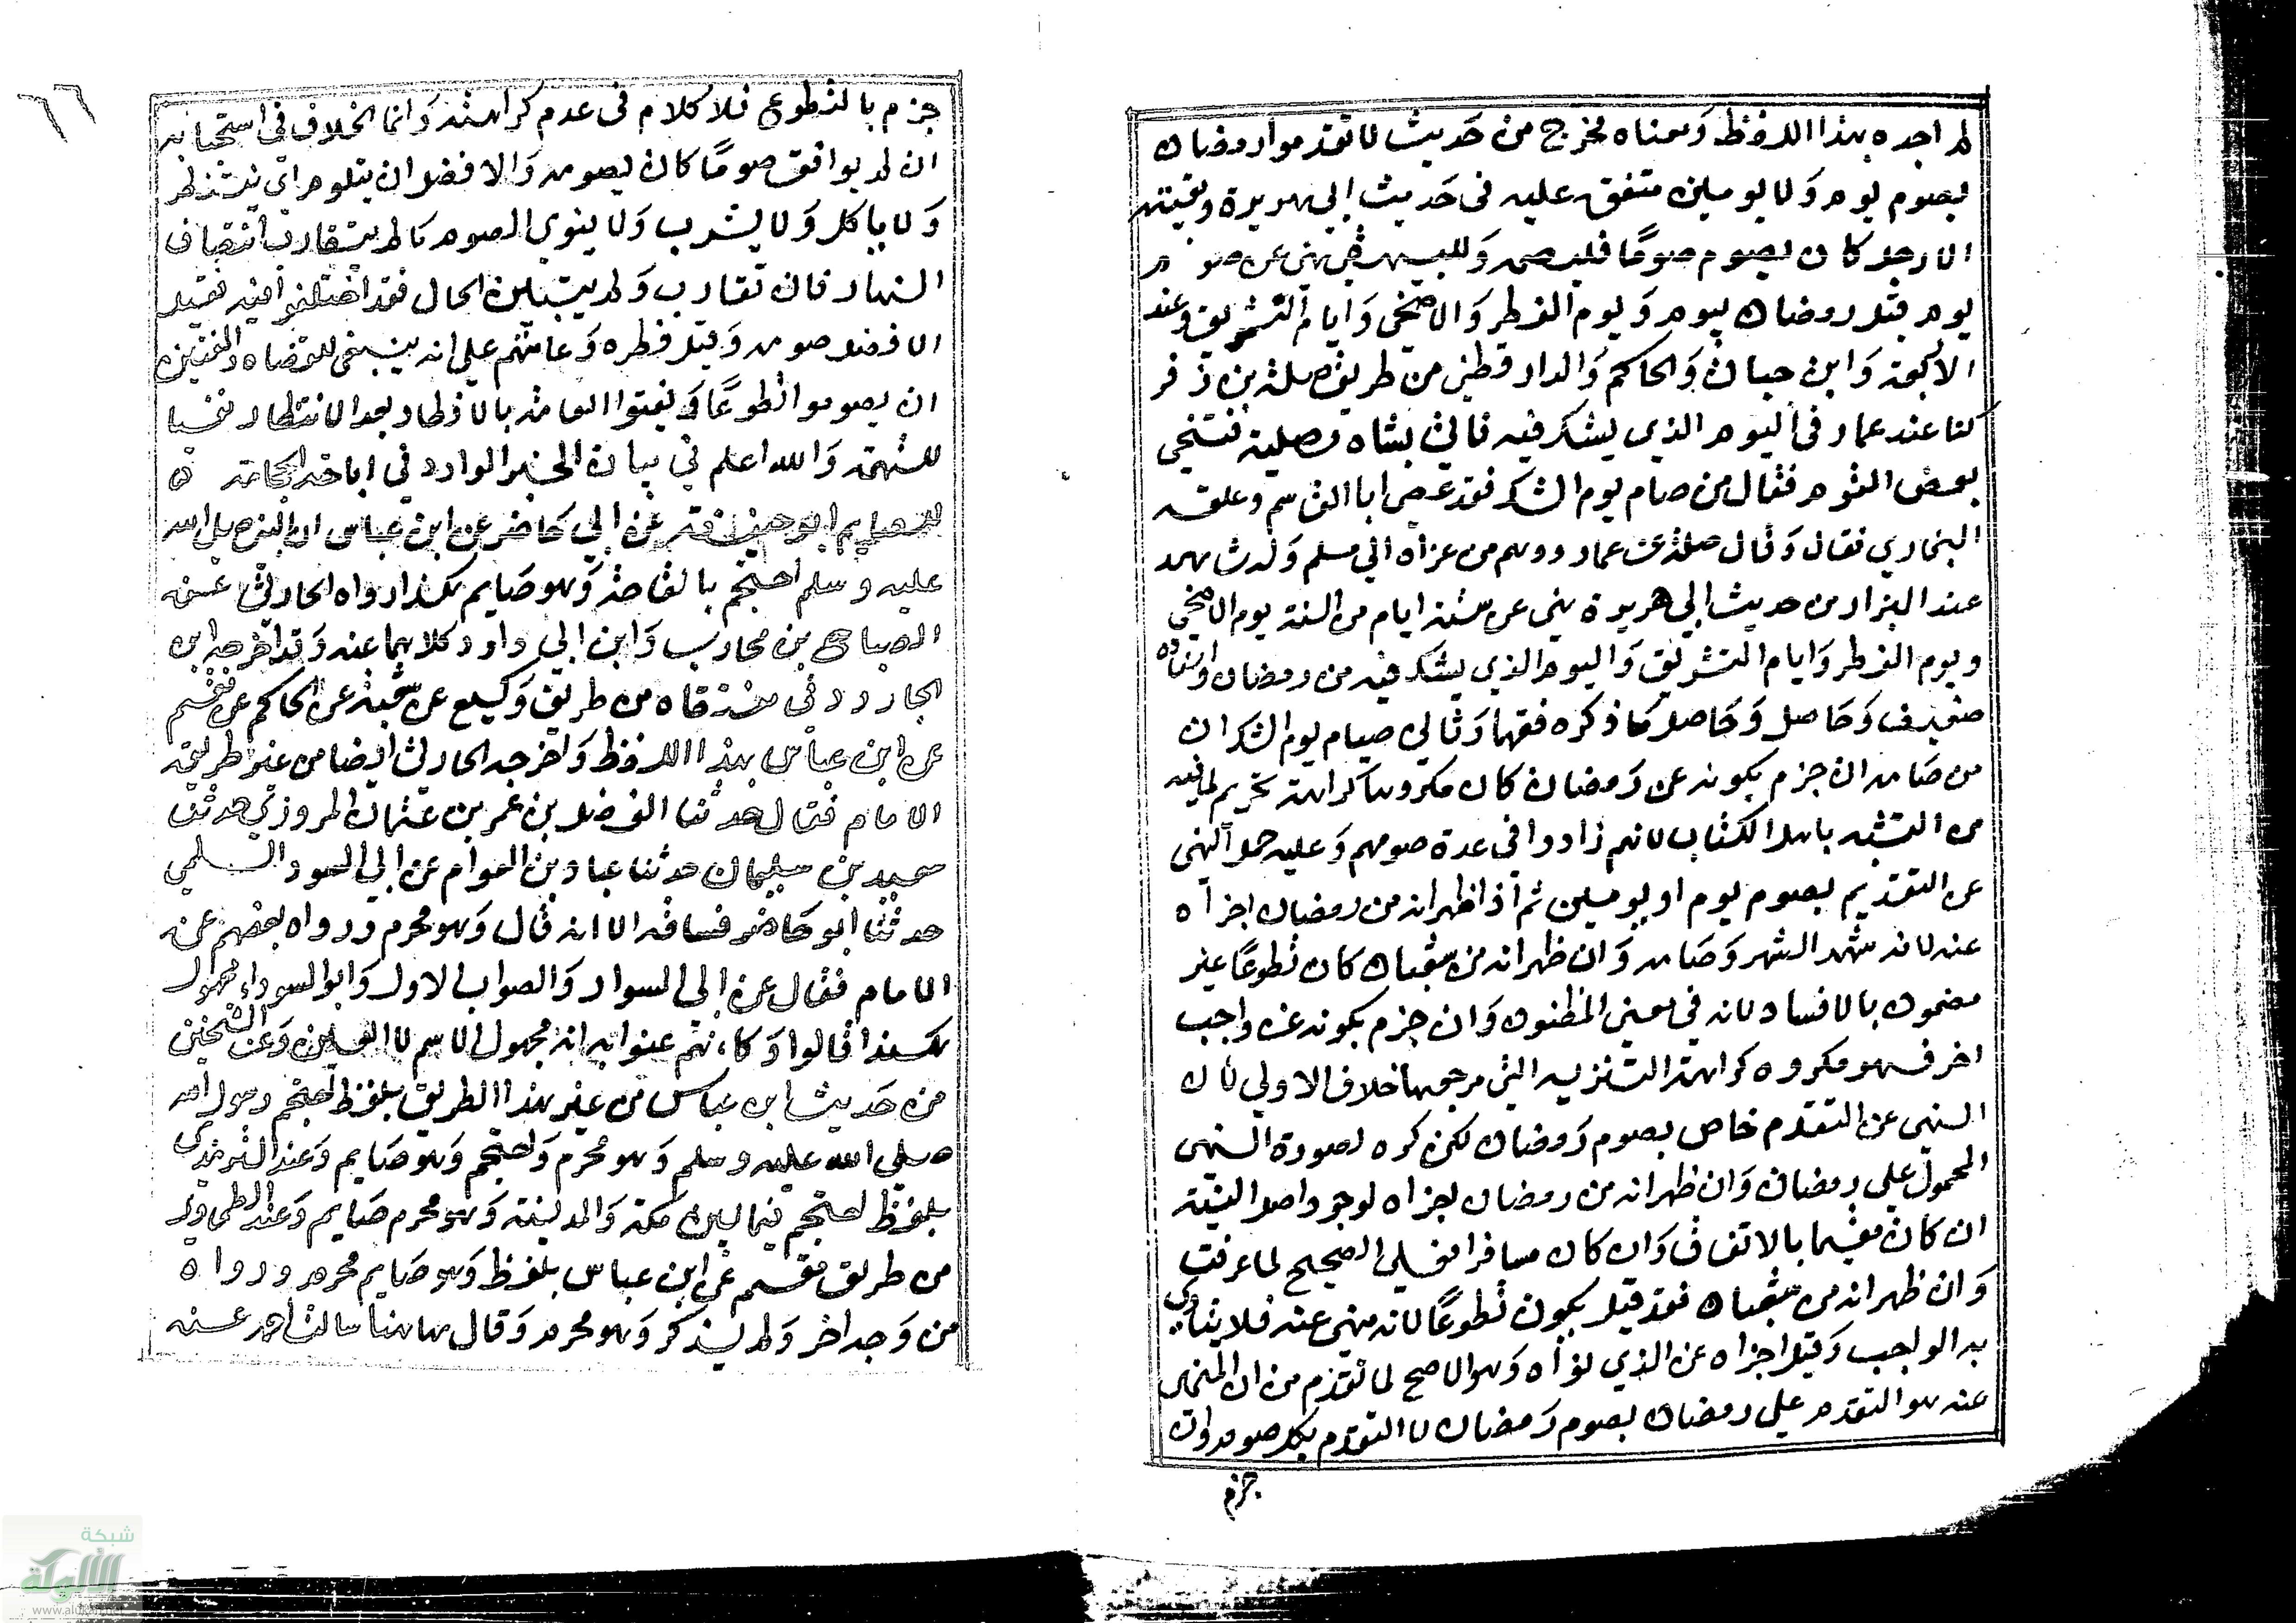 لم اجده بهذا اللفظ وَمعناه مخرج من حَديث لا تقدموا رمضان
بصوم يوم وَلا يومين متفق عليه في حَديث ابي هريرة وبقيته
الا رجل كان يصوم صومًا فليصمه وَللبيهقي نهى عن صوم
يوم قبل رمضان بيوم وَيوم الفطر وَالاضحى وَايام التشريق وعند
الاربعة وَابن حبان وَالحاكم وَالدارقطني من طريق صلة بن زفر
كنا عند عمار في اليوم الذي يشك فيه فاتي بشاه مصلية فتنحى
بعض القوم فقال من صام يوم الشك فقد عصى ابا القاسم وعلقه
البخاري فقال وَقال صلة عن عمار ووهم من عزاه الي مسلم وَلد شاهد
عند البزار من حديث ابي هريرة نهى عن ستة ايام من السنة يوم الاضحى
ويوم الفطر وَايام التشريق وَاليوم الذي يشك فيه من رمضان واسناده
ضعيف وَحَاصل مَا ذكره فقهاؤنا في صيام يوم الشك ان
من صَامه ان جزم بكونه عن رَمضان كان مكروها كراهة تحريم لما فيه
من التشبه باهل الكتاب لانهم زادوا في عدة صومهم وَعليه حمل النهي
عن التقديم بصوم يوم او يومين ثم اذا ظهر انه من رمضان اجزاه
عنه لانه شهد الشهر وَصَامه وَان ظهر انه من شعبان كان تطوعًا غير
مضمون بالافساد لانه في معنى المظنون وَان جزم بكونه عن واجب
اخر فهو مكروه كراهة التنزيه التي مرجعها خلاف الاولي لان
النهي عن التقدم خاص بصوم رَمضان لكن كره لصورة النهى
المحمول علي رمضان وَان ظهر انه من رمضان اجزاه لوجود اصل النية
ان كان مقيما بالاتفاق وَان كان مسافرا فعلي الصحيح لما عرفت
وَان ظهر انه من شعبان فقد قيل يكون تطوعًا لانه منهي عنه فلا يتادي
به الواجب وَقيل اجزاه عن الذي نواه وَهو الاصح لما تقدم من ان المنهى
عنه هو التقدم علي رمضان بصوم رَمضان لا التقدم بكل صوم وان
جزم
٦٦
جزم بالتطوع فلا كلام في عدم كراهته وَانما الخلاف في استحبابه
ان لم يوافق صومًا كان يصومه وَالافضل ان يتلوم اي ينتظر
وَلا ياكل وَلا يشرب وَلا ينوي الصوم مَا لم يتقارب انتصاف
النهار فان تقارب وَلم يتبين الحال فقد اختلفوا فيه فقيل
الافضل صومه وَقيل فطره وَعامتهم علي انه ينبغي للقضاه والمفتين
ان يصوموا تطوعًا وَيفتوا العامة بالافطار بعد الانتظار نفيا
للتهمة وَالله اعلم في بيان الخبر الوارد في اباحة الحجامة
للصايم ابو حنيفة عن ابي حَاضر عن ابن عباس ان النبي صلي الله
عليه وسلم احتجم بالقاحة وَهو صَايم هكذا رواه الحارثي عنه
الصباح بن محارب وَابن ابي داود كلاهما عنه وَقد اخرجه ابن
الجارود في منتقاه من طريق وَكيع عن شعبة عن الحاكم عن مقسم
عن ابن عباس بهذا اللفظ وَاخرجه الحارثي ايضا من غير طريق
الامام فقال حدثنا الفضل بن عمر بن عثمان المروزي حدثنا
سعيد بن سليمان حدثنا عباد بن العوام عن ابي السود السلمي
حدثنا ابو حَاضر فساقه الا انه قال وَهو محرم ورواه بعضهم عن
الامام فقال عن ابي السوار وَالصواب الاول وَابو السوداء مجهول
هكذا قالوا وَكانهم عنوا به انه مجهول الاسم لا العين وَعند الشيخين
من حَديث ابن عباس من غير هذا الطريق بلفظ احتجم رسول الله
صلي الله عليه وسلم وَهو محرم وَاحتجم وَهو صَايم وَعند الترمذي
بلفظ احتجم فيما بين مكة وَالمدينة وَهو محرم صَايم وَعند الطحاوي
من طريق مقسم عن ابن عباس بلفظ وَهو صَايم محرم ورواه
من وَجه اخر وَلم يذكر وَهو محرم وَقال مهنا سالت احمد عنه
شبكة
الألوكة